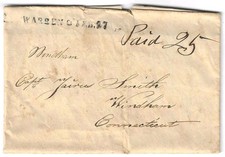 WARREN O JAN. 27
Paid 25
Windham
Capt. Jaires Smith
Windham
Connecticut